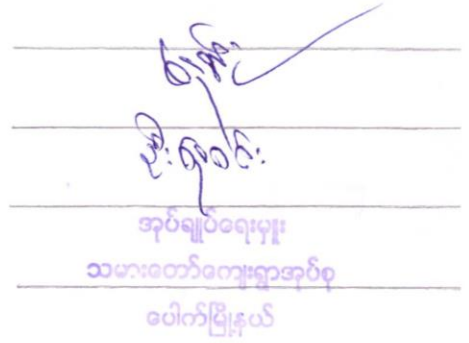 ဦးရဲဝင်း
အုပ်ချုပ်ရေးမှူး
သမားတော်ကျေးရွာအုပ်စု
ပေါက်မြို့နယ်